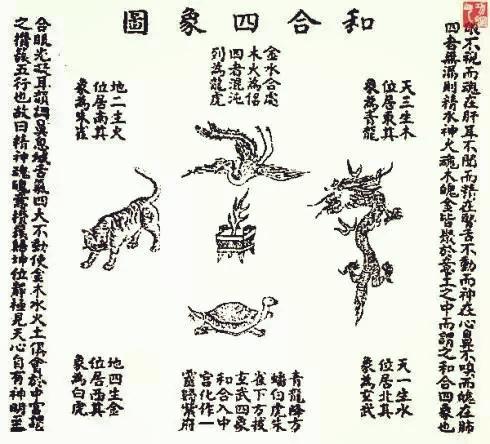 和合四象圖
眼不視而魂在肝耳不聞而精在腎舌不動而神在心鼻不嗅而魄在肺
四者無漏則精水神火魂木魄金皆聚於意土之中而謂之和合四象也
天三生木
位居東其
象為青龍
天一生水
位居北其
象為玄武
金水合處
木火為侶
四者混沌
列為龍虎
青龍降方
蟠白虎朱
雀下方接
玄武四象
和合入中
宮化作一
靈歸紫府
地二生火
位居南其
象為朱雀
地四生金
位居西其
象為白虎
含眼光凝耳韻調鼻息緘舌氣四大不動使金木水火土俱會於中宮謂
之攢簇五行也故曰精神魂魄意攢簇歸坤位靜極見天心自有神明至